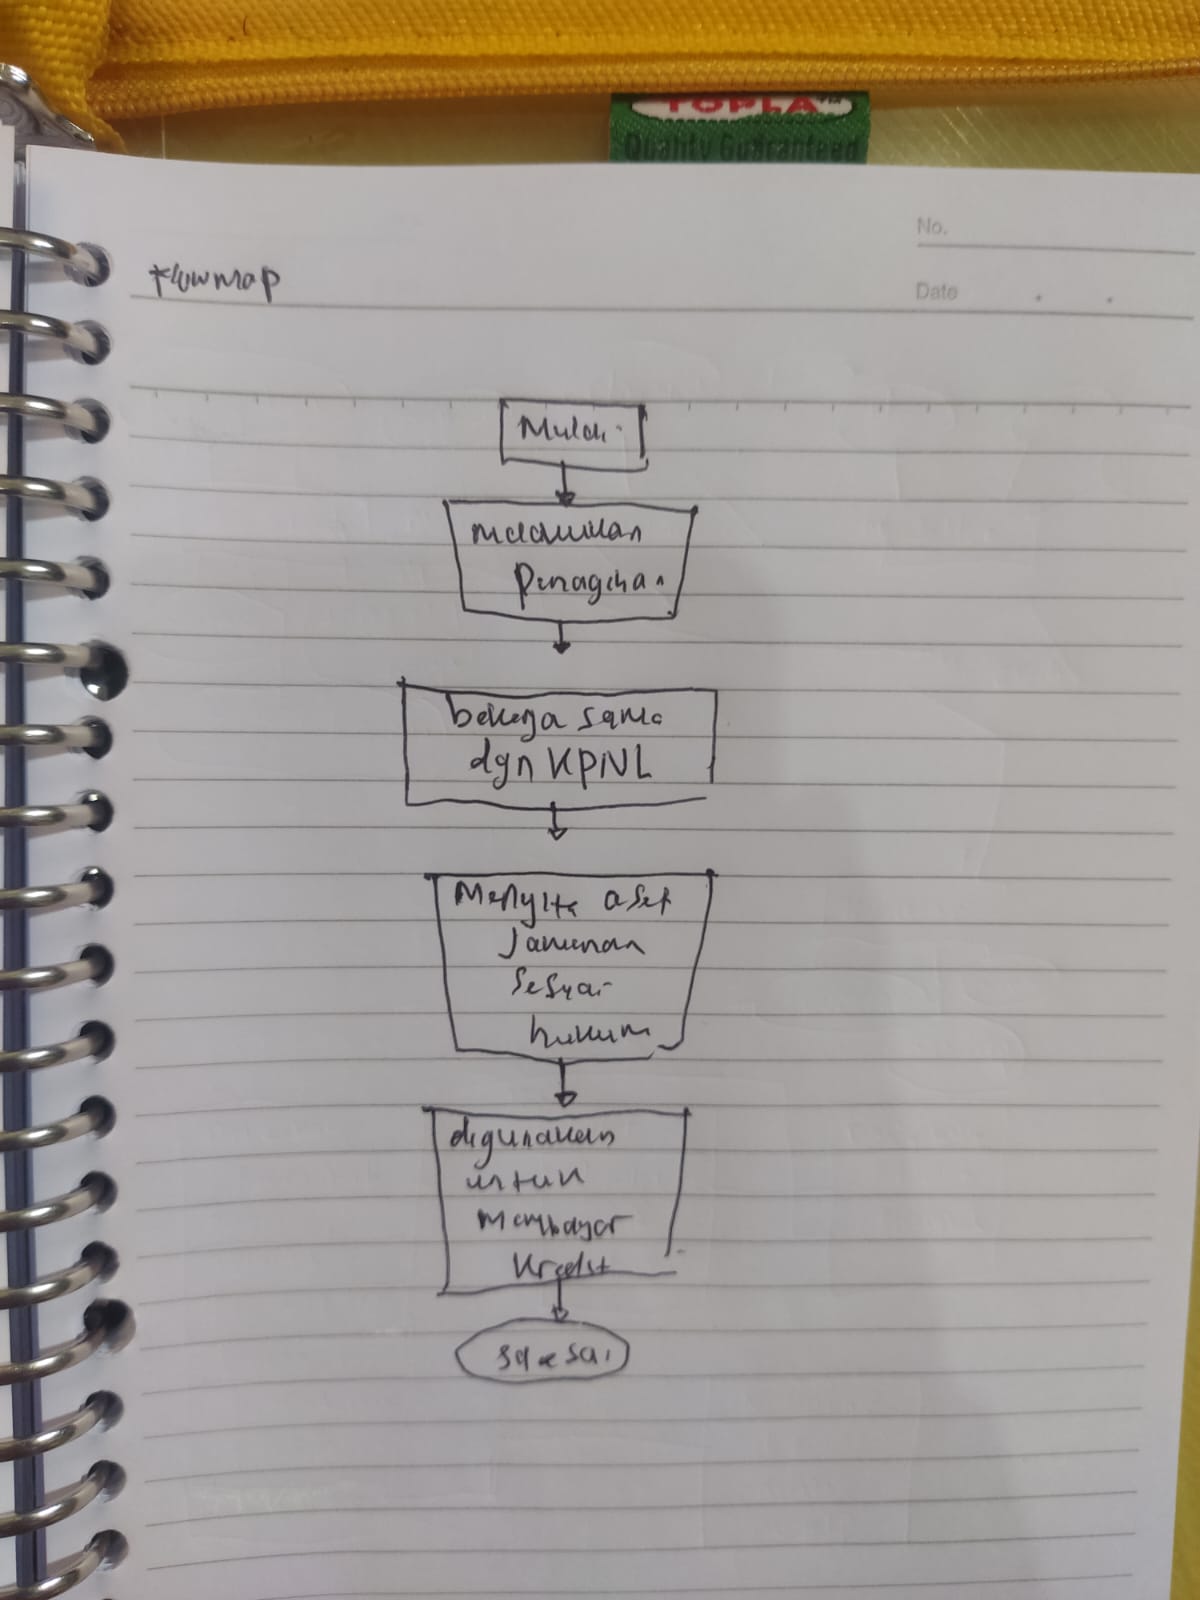 TOPLA™
Quality Guaranteed
No.
Date
Flowmap
Mulai
melakukan
Penagihan
bekerja sama
dgn KPKNL
Menyita aset
Jaminan
Sesuai
hukum
digunakan
untuk
Membayar
Kredit
selesai